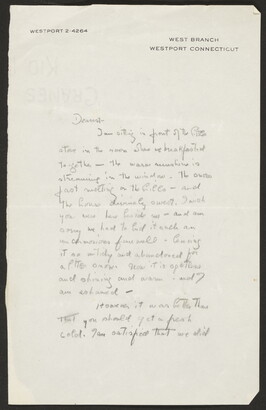 WESTPORT 2-4264
WEST BRANCH
WESTPORT CONNECTICUT
Dearest -
I am sitting in front of the little
stove in the room where we breakfasted
together - the warm sunshine is
streaming in the window. The snow
just melting on the hills - and
the house divinely quiet. I wish
you were here beside me - and am
sorry we had to bid it such an
unceremonious farewell - leaving
it so untidy and abandoned for
a little snow. Now it is spotless
and shining and warm - and I
am ashamed -
However it was better than
that you should get a fresh
cold. I am satisfied that we did